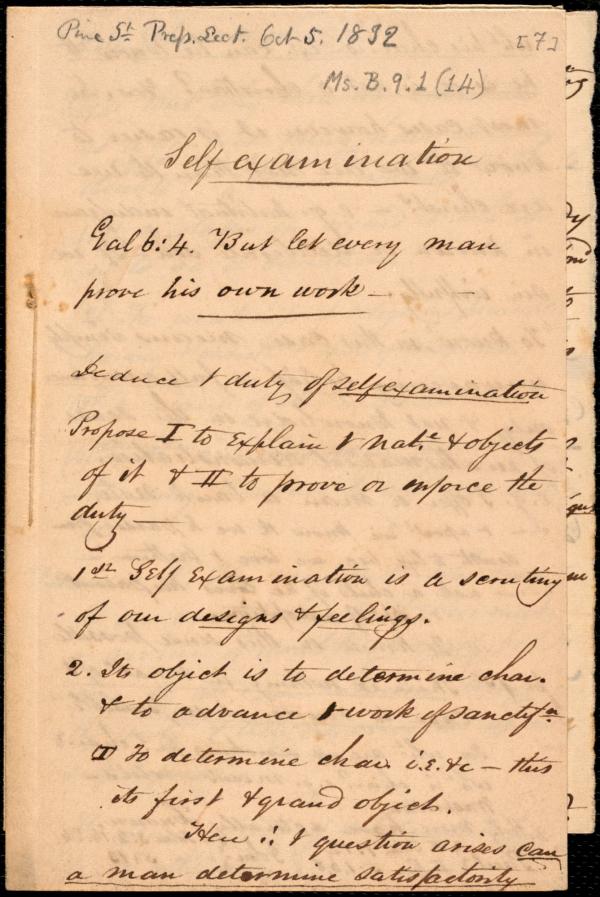 Pine St. Prep. Lect. Oct 5. 1832 [7]
Ms. B. 9. 1 (14)
Self examination
Gal 6: 4. But let every man
prove his own work —
Deduce t duty of self examination
Propose I to explain t nat.e & objects
of it & II to prove or enforce the
duty —
1st Self Examination is a scrutiny
of our designs & feelings.
2. Its object is to determine char.
& to advance t work of sanctif.n
To determine char. i.e. &c — this
its first & grand object.
Here t question arises can
a man determine satisfactorily